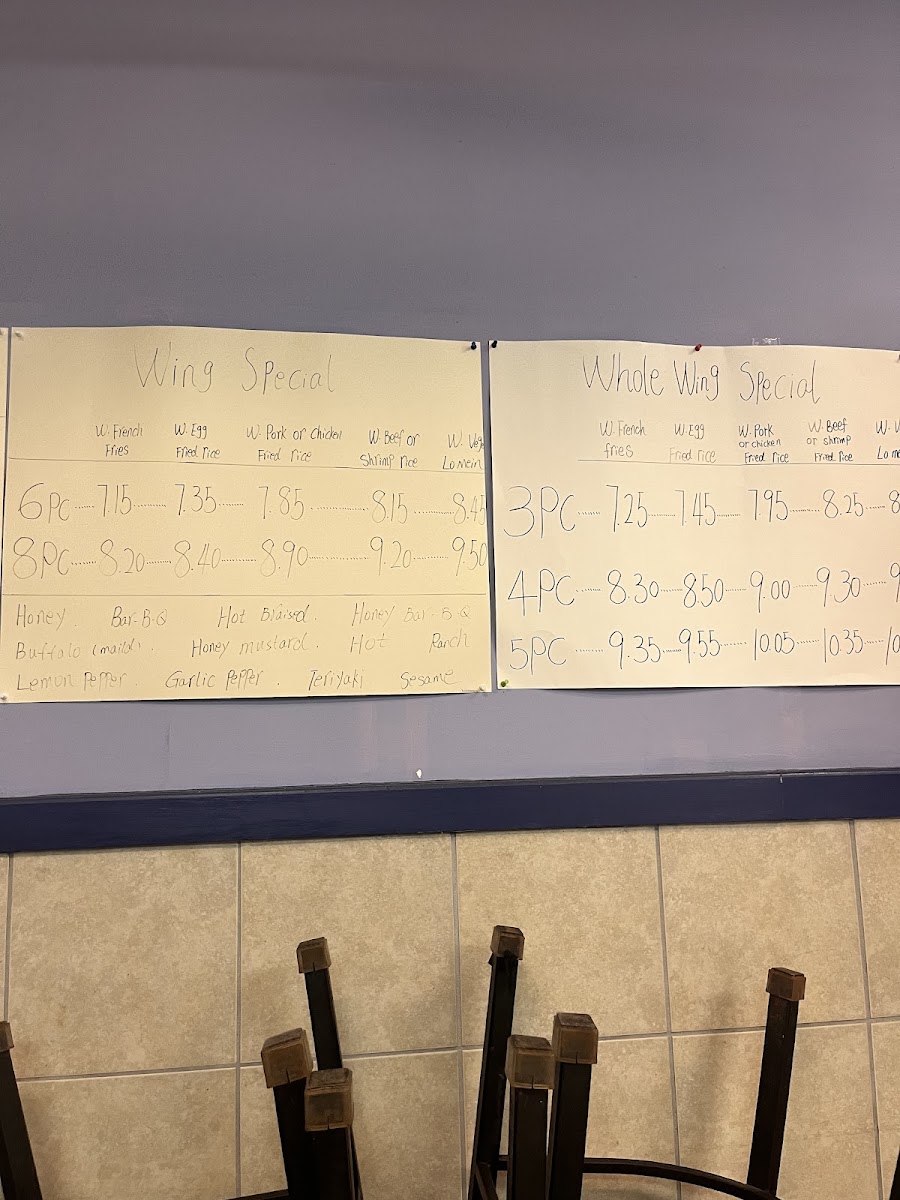 Wing Special
W. French Fries W. Egg Fried rice W. Pork or Chicken Fried rice W. Beef or Shrimp rice W. Lo mein
6PC 7.15 7.35 7.85 8.15 8.45
8PC 8.20 8.40 8.90 9.20 9.50
Honey. Bar-B-Q Hot Blaised. Honey Bar-B-Q
Buffalo (maild). Honey mustard. Hot Ranch
Lemon Pepper. Garlic Pepper. Teriyaki Sesame
Whole Wing Special
W. French fries W. Egg Fried rice W. Pork or chicken Fried rice W. Beef or shrimp Fried rice
3PC 7.25 7.45 7.95 8.25
4PC 8.30 8.50 9.00 9.30
5PC 9.35 9.55 10.05 10.35